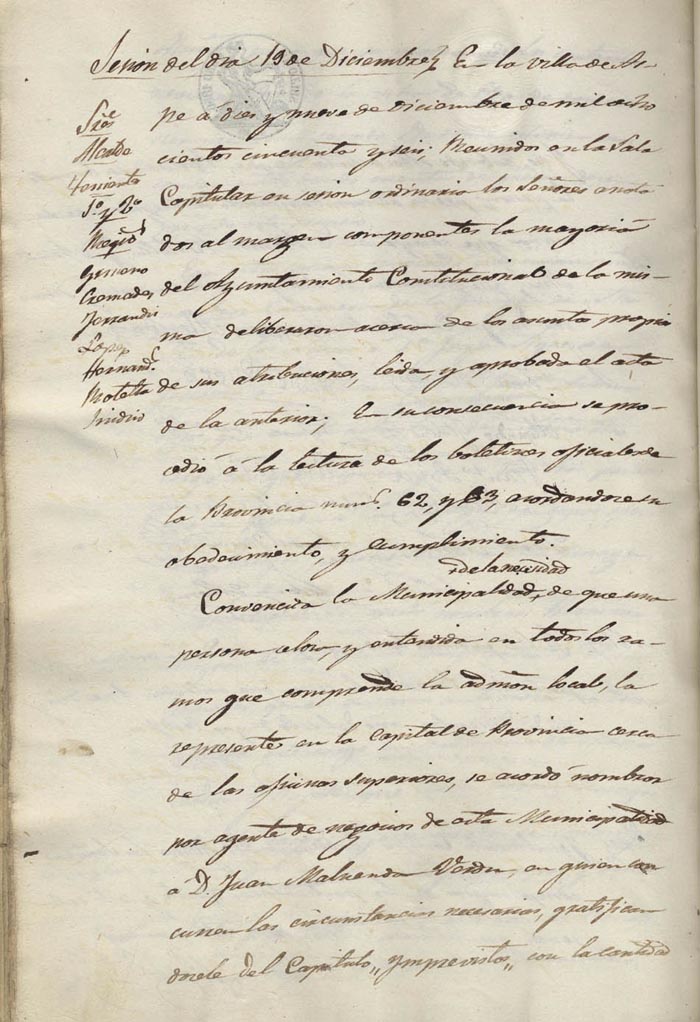 Sesion del dia 19 de Diciembre} En la villa de As-
pe á diez y nueve de diciembre de mil ocho
cientos cincuenta y seis; Reunidos en la Sala
Capitular en sesion ordinaria los Señores anota
dos al margen componentes la mayoria
del Ayuntamiento Constitucional de la mis-
ma deliberaron acerca de los asuntos propios
de sus atribuciones, leida, y aprobada el acta
de la anterior; En su consecuencia se pro-
cedió á la lectura de los boletines oficiales de
la Provincia num.s 62, y 63, acordandose su
obedecimiento, y cumplimiento.
+ de la necesidad
Convencida la Municipalidad, + de que una
persona celosa, y entendida en todos los ra-
mos que comprende la admon local, la
represente en la Capital de Provincia cerca
de las oficinas superiores, se acordó nombrar
por agente de negocios de esta Municipalidad
á D. Juan Maluenda Verdu, en quien con
curren las circunstancias necesarias, gratifican
dosele del Capitulo „ ymprevistos „ con la cantidad
Sres
Alcalde
Teniente
1o y 2o
Regid.s
Cremades
Ferrandis
Lopez
Hernand.z
Botella
Sindico